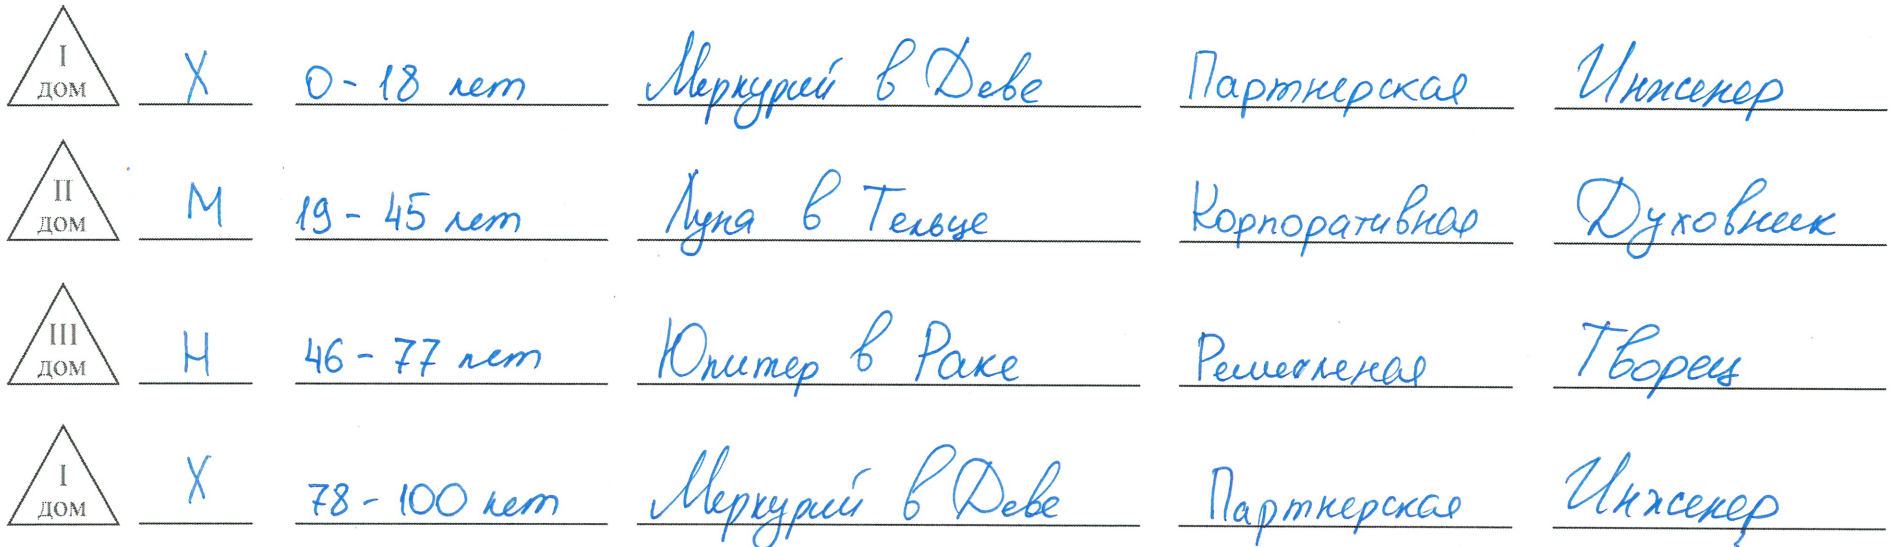 I дом Х 0 - 18 лет Меркурий в Деве Партнерская Инженер
II дом М 19 - 45 лет Луна в Тельце Корпоративная Духовник
III дом Н 46 - 77 лет Юпитер в Раке Творец
I дом Х 78 - 100 лет Меркурий в Деве Партнерская Инженер